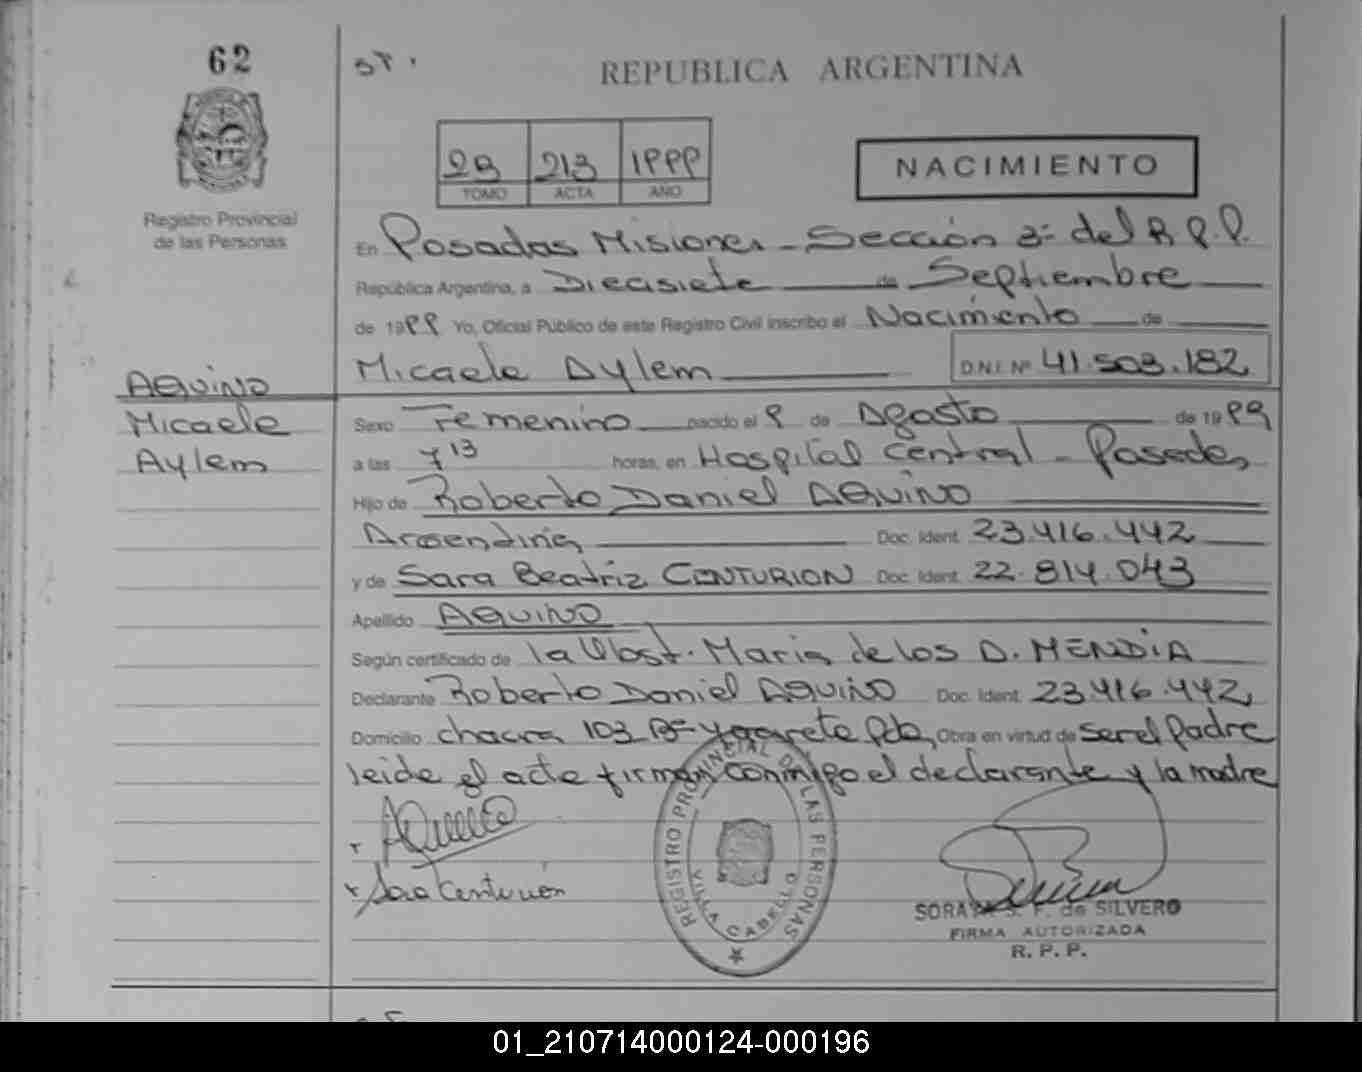 62
REPUBLICA ARGENTINA
213 1999
TOMO ACTA AÑO
NACIMIENTO
Registro Provincial
de las Personas
En Posadas Misiones - Sección 3ª del R.P.P.
República Argentina, a Diecisiete de Septiembre
de 1999 Yo, Oficial Público de este Registro Civil inscribo el Nacimiento de
Micaela Aylem D.N.I. Nº 41.503.182
AQUINO
Micaela
Aylem
Sexo Femenino nacido el 9 de Agosto de 1999
a las 7 13 horas, en Hospital Central - Posadas
Hijo de Roberto Daniel AQUINO
Argentina Doc. Ident. 23.416.442
y de Sara Beatriz CENTURION Doc. Ident. 22.814.043
Apellido AQUINO
Según certificado de la Obst. Maria de los D. MENDIA
Declarante Roberto Daniel AQUINO Doc. Ident. 23.416.442
Domicilio chacra 103 Bº Yaguarete Pdas, Obra en virtud de ser el padre
leida el acta firman conmigo el declarante y la madre
Aquino
Sara Centurión
REGISTRO PROVINCIAL DE LAS PERSONAS
VILLA CABELLO
SORAYA S. F. de SILVERO
FIRMA AUTORIZADA
R. P. P.
01_210714000124-000196